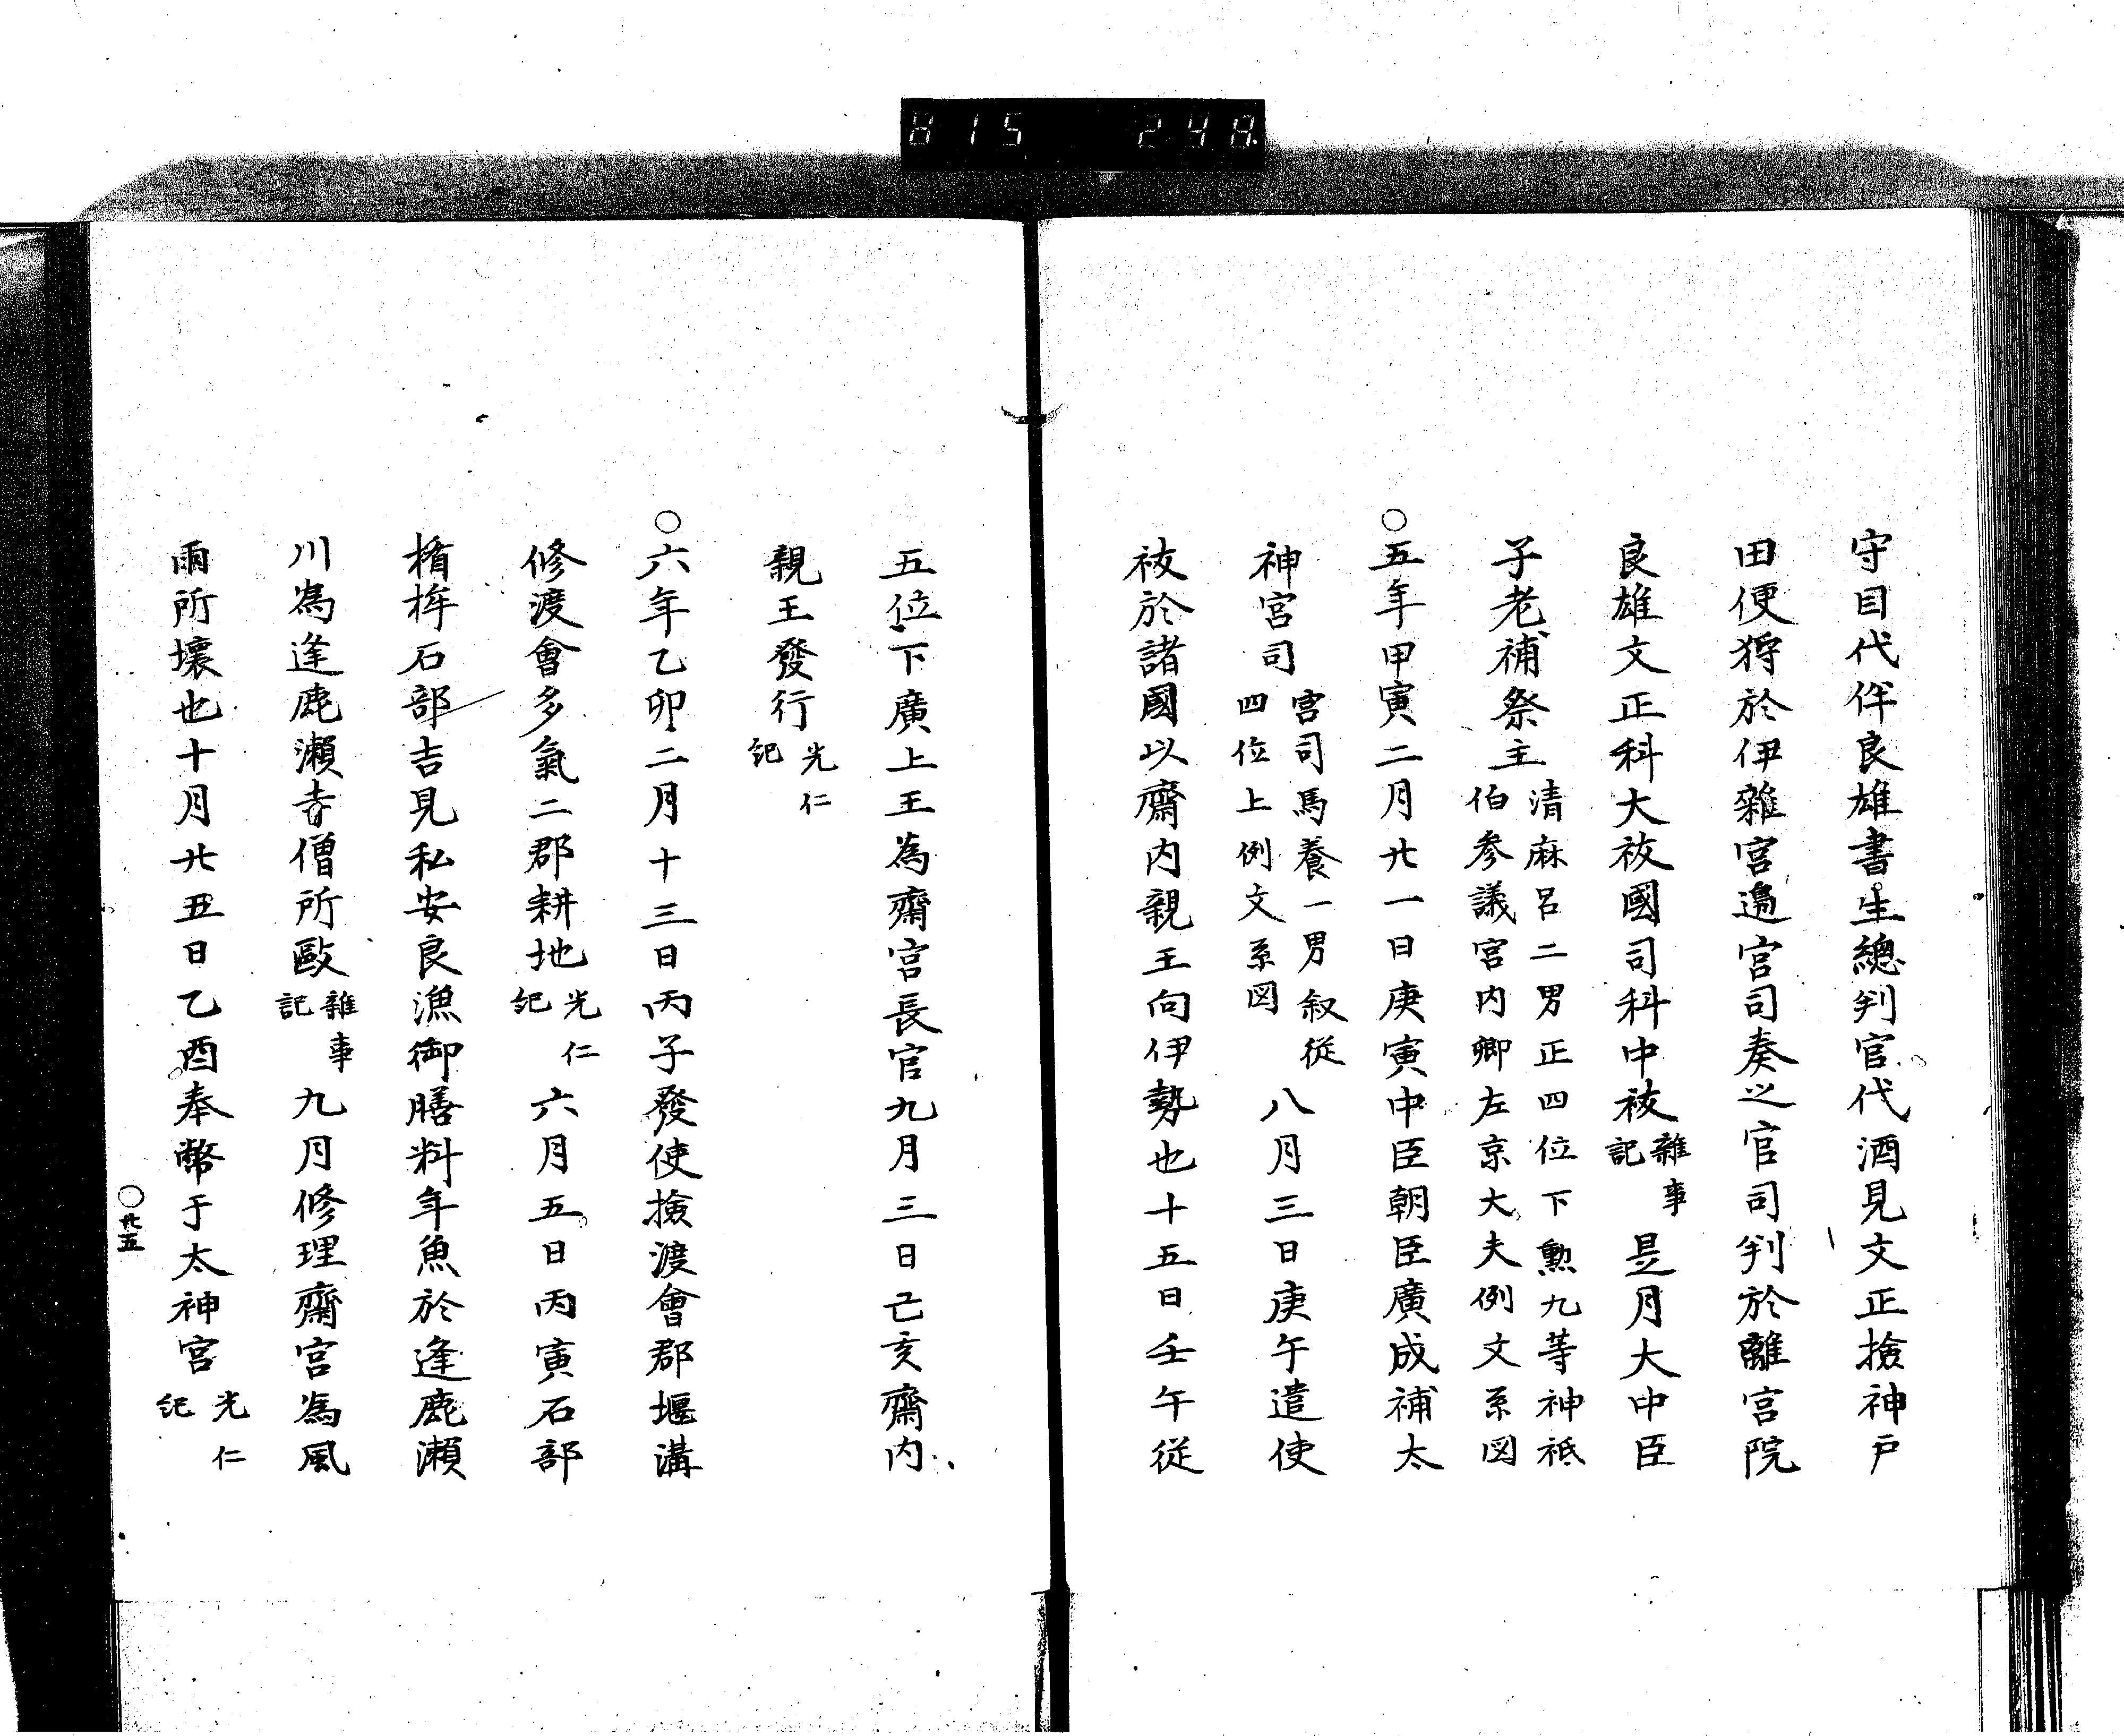 815 248
守目代伴良雄書生總判官代酒見文正撿神戸
田便狩於伊雜宮邊宮司奏之官司判於離宮院
良雄文正科大祓國司科中祓雜事記是月大中臣
子老補祭主清麻呂二男正四位下勲九等神祇伯参議宮内卿左京大夫例文系図
○五年甲寅二月廿一日庚寅中臣朝臣廣成補太
神宮司宮司馬養一男叙従四位上例文系図八月三日庚午遣使
祓於諸國以齋内親王向伊勢也十五日壬午従
五位下廣上王為齋宮長官九月三日己亥齋内
親王發行光仁紀
○六年乙卯二月十三日丙子發使撿渡會郡堰溝
修渡會多氣二郡耕地光仁紀六月五日丙寅石部
楯桙石部吉見私安良漁御膳料年魚於逢鹿瀬
川為逢鹿瀬寺僧所毆雜事記九月修理齋宮為風
雨所壞也十月廿五日乙酉奉幣于太神宮光仁紀
○廿五